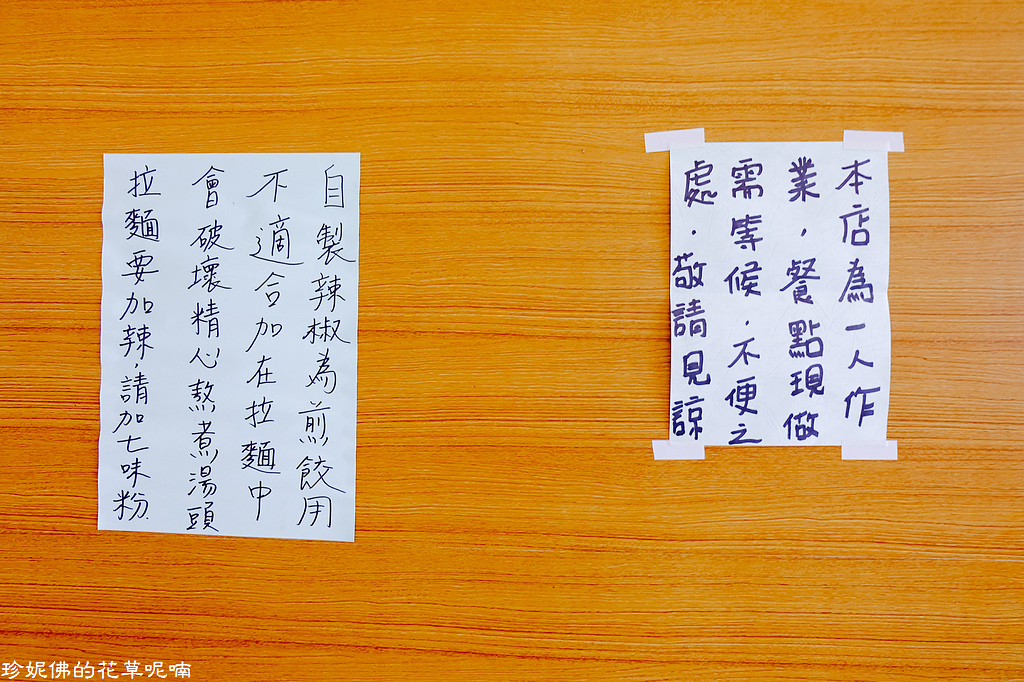 本店為一人作
業，餐點現做
需等候．不便之
處．敬請見諒
自製辣椒為煎餃用
不適合加在拉麵中
會破壞精心熬煮湯頭
拉麵要加辣，請加七味粉．
珍妮佛的花草呢喃